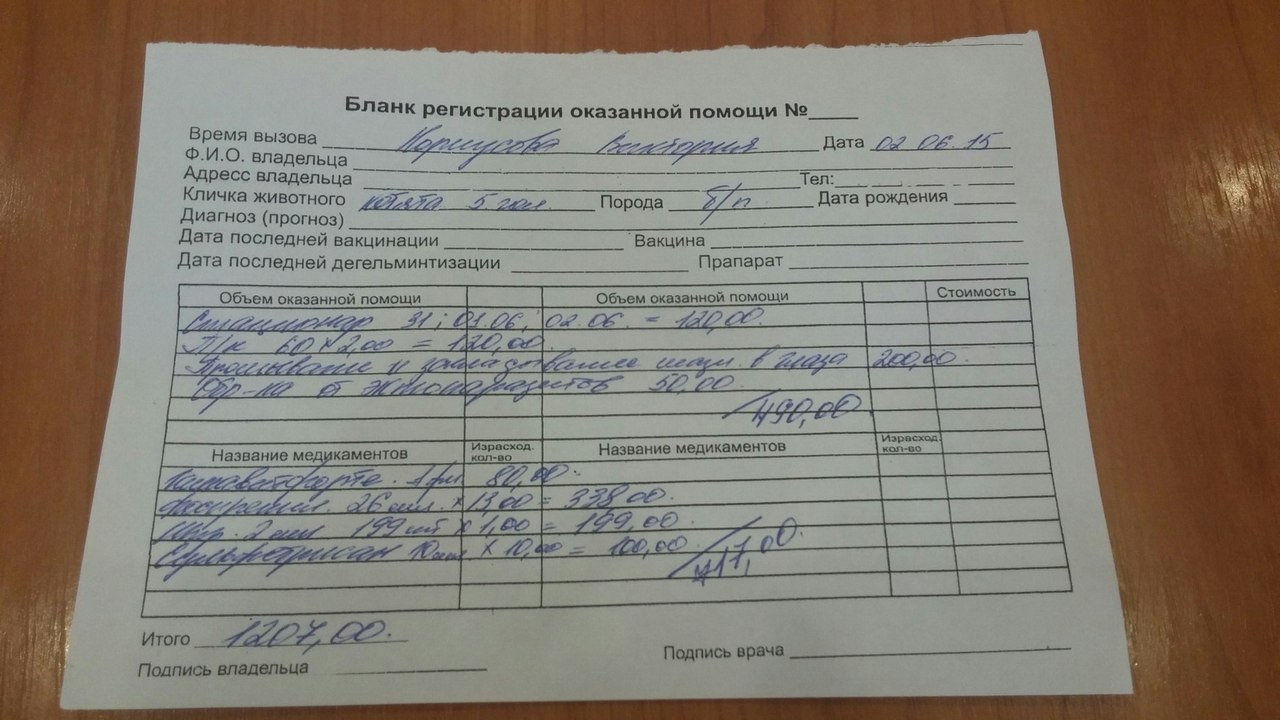 Бланк регистрации оказанной помощи №____
Время вызова Виктория Дата 02 06 15
Ф.И.О. владельца
Адресс владельца Тел:
Кличка животного котята 5 гол. Порода б/п. Дата рождения
Диагноз (прогноз)
Дата последней вакцинации Вакцина
Дата последней дегельминтизации Препарат
Объем оказанной помощи Объем оказанной помощи Стоимость
Стационар 31; 01.06; 02.06. = 120,00.
П/к 60 x 2,00 = 120,00.
Промывание и закладывание мази в глаза 200,00.
Обр-ка от эктопаразитов 50,00.
490,00.
Название медикаментов Израсход. кол-во Название медикаментов Израсход. кол-во
1 фл 80,00.
26 x 13,00 = 338,00.
Шпр. 2 мл 199 шт x 1,00 = 199,00.
10 мл x 10,00 = 100,00.
717,00.
Итого 1207,00.
Подпись владельца Подпись врача